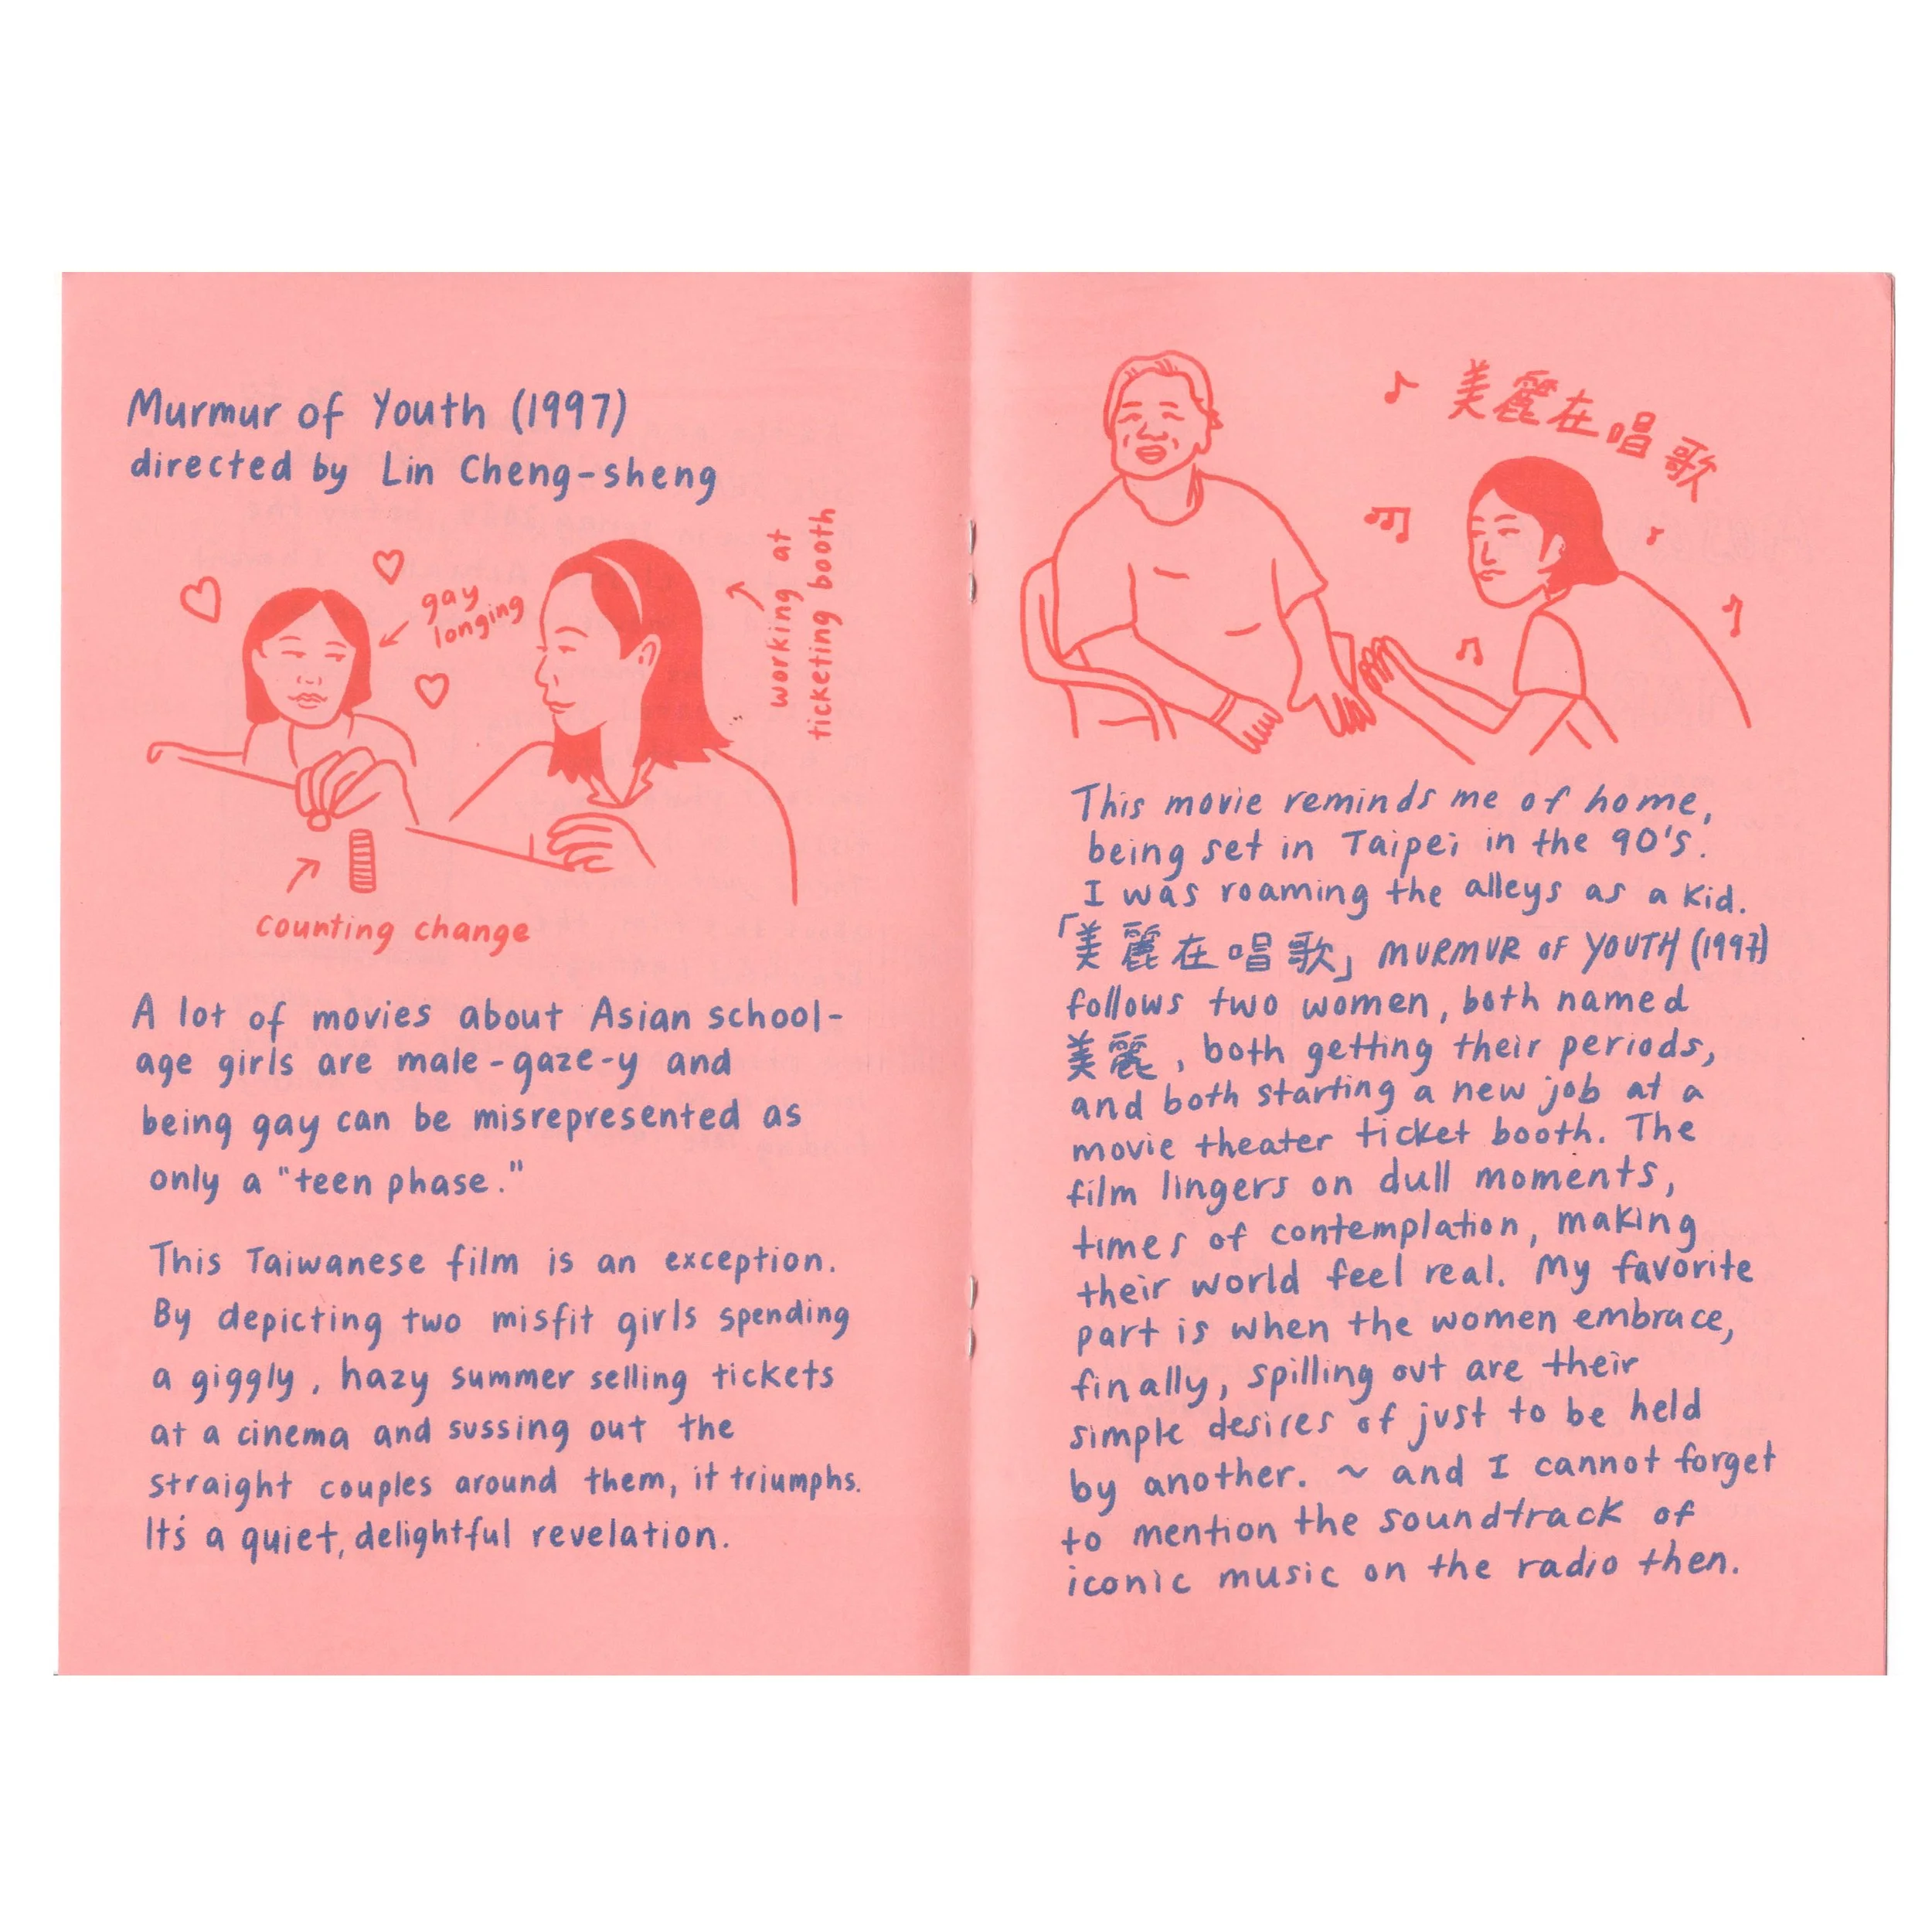 Murmur of Youth (1997)
directed by Lin Cheng-sheng
gay
longing
working at
ticketing booth
counting change
A lot of movies about Asian school-
age girls are male-gaze-y and
being gay can be misrepresented as
only a "teen phase."
This Taiwanese film is an exception.
By depicting two misfit girls spending
a giggly, hazy summer selling tickets
at a cinema and sussing out the
straight couples around them, it triumphs.
It's a quiet, delightful revelation.
♪ 美麗在唱歌
This movie reminds me of home,
being set in Taipei in the 90's.
I was roaming the alleys as a kid.
「美麗在唱歌」 MURMUR OF YOUTH (1997)
follows two women, both named
美麗, both getting their periods,
and both starting a new job at a
movie theater ticket booth. The
film lingers on dull moments,
times of contemplation, making
their world feel real. My favorite
part is when the women embrace,
finally, spilling out are their
simple desires of just to be held
by another. ~ and I cannot forget
to mention the soundtrack of
iconic music on the radio then.